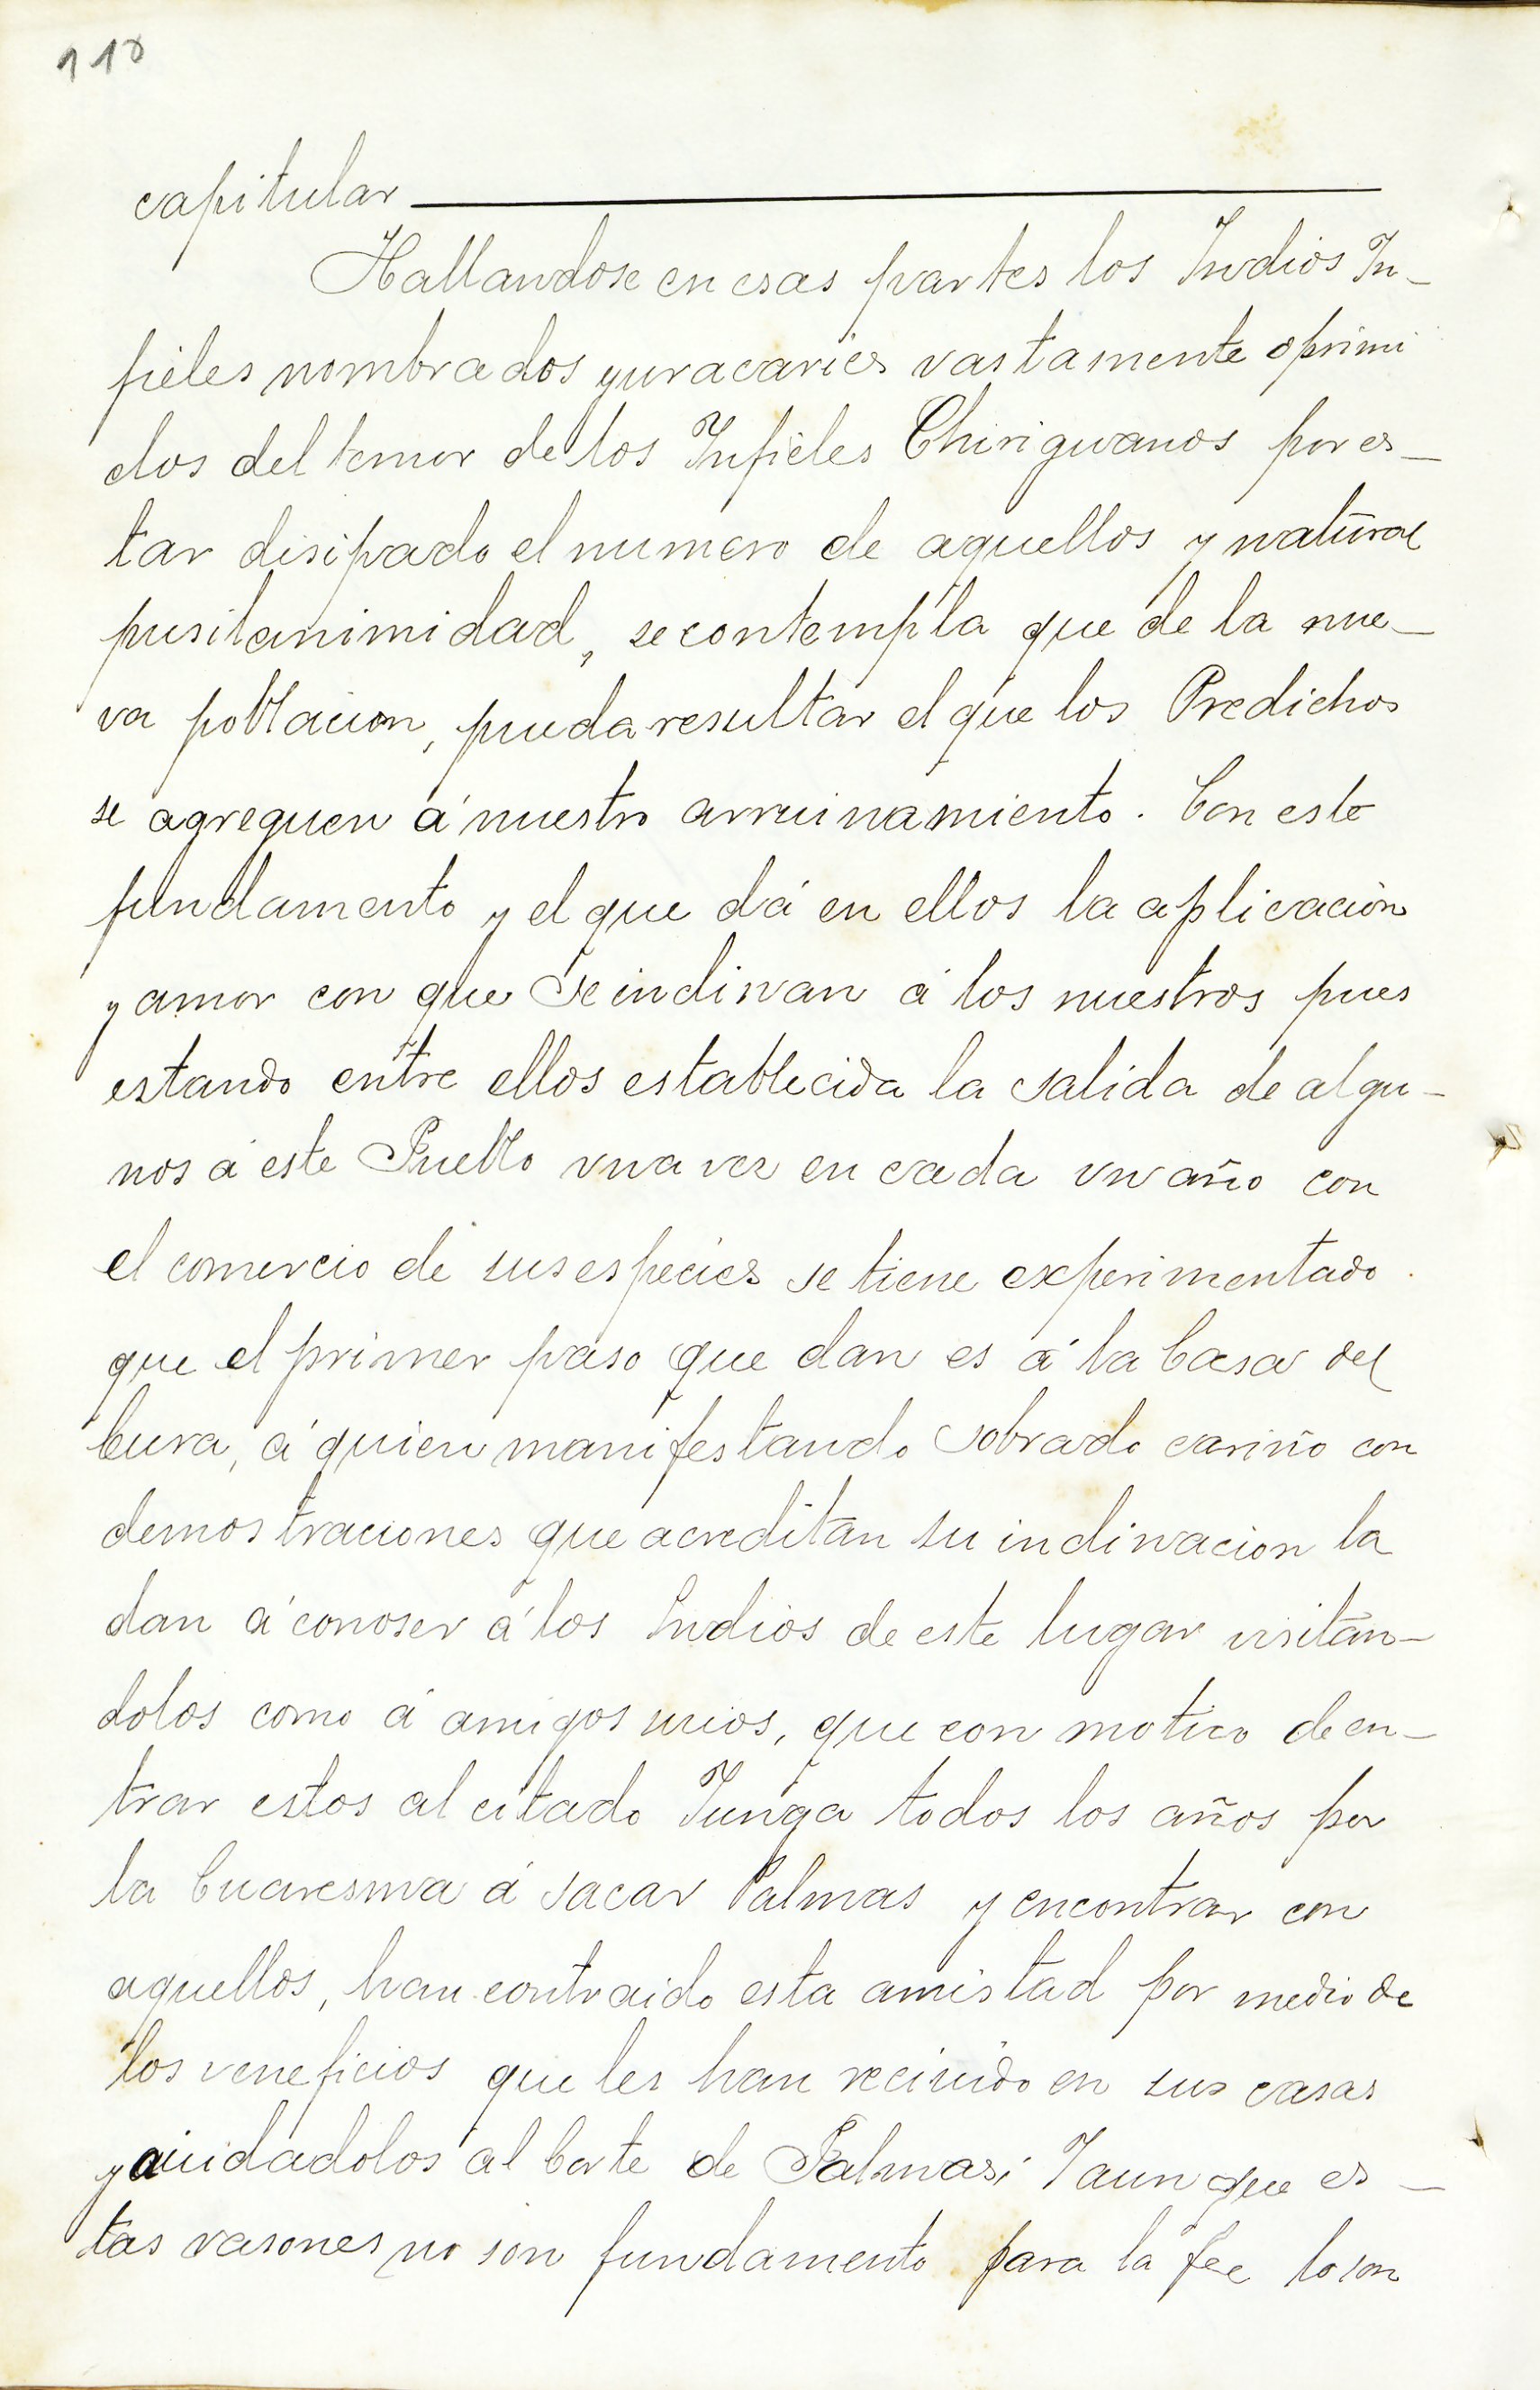 110
capitular
Hallandose en esas partes los Indios In-
fieles nombrados yuracaries vastamente oprimi
dos del temor de los Infieles Chiriguanos por es-
tar disipado el numero de aquellos y natural
pusilanimidad, se contempla que de la nue-
va poblacion, pueda resultar el que los Predichos
se agreguen á nuestro arruinamiento. Con este
fundamento y el que dá en ellos la aplicacion
y amor con que se inclinan á los nuestros pues
estando entre ellos establecida la salida de algu-
nos á este Pueblo vna vez en cada vn año con
el comercio de sus especies se tiene experimentado
que el primer paso que dan es á la Casa del
Cura, á quien manifestando sobrado cariño con
demostraciones que acreditan su inclinacion la
dan á conoser á los Indios de este lugar visitan-
dolos como á amigos suios, que con motivo de en-
trar estos al citado Yunga todos los años por
la Cuaresma á sacar Palmas y encontrar con
aquellos, han contraido esta amistad por medio de
los veneficios que les han recivido en sus casas
y aiudadolos al Corte de Palmas; Y aunque es-
tas rasones no son fundamento para la fee lo son